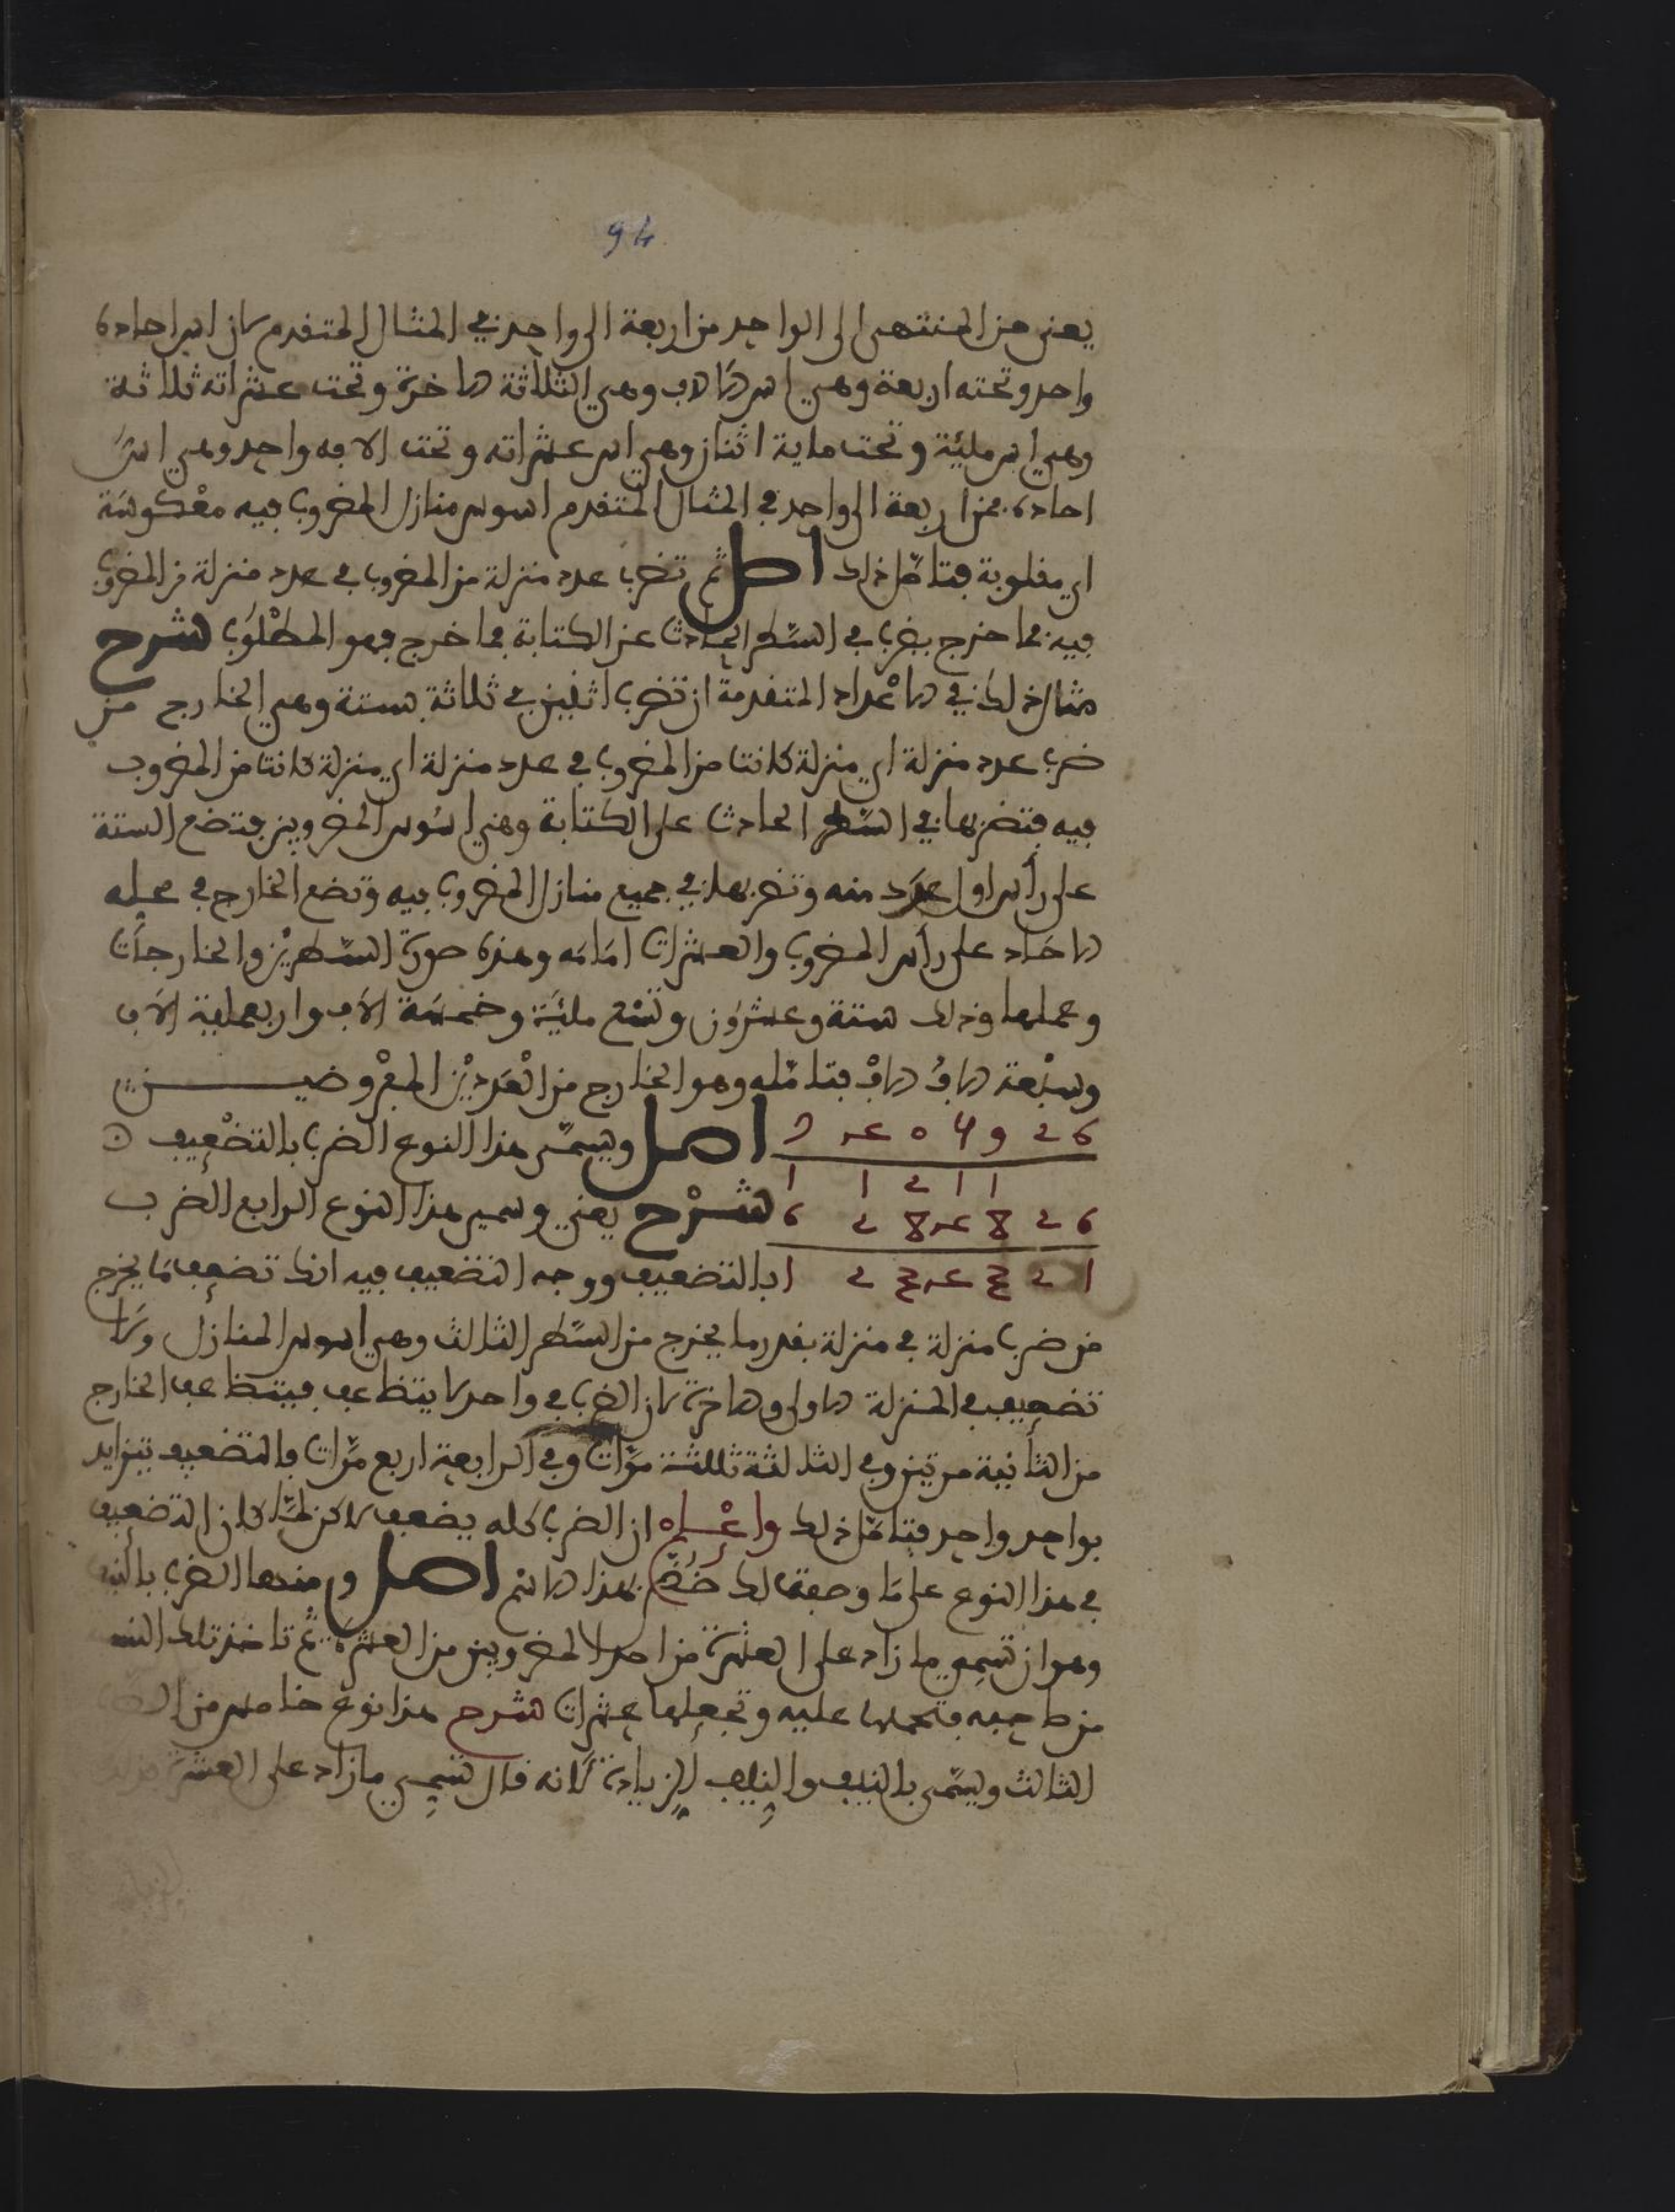 94
يعني من المنتهى الى الواحد من اربعة الى واحد في المثال المتقدم لان اس احاده
واحد وتحته اربعة وهي اس الالاف وهي الثلاثة الاخرة وتحت عشراته ثلاثة
وهي اس مائية وتحت ماية اثنان وهي اس عشراته وتحت الافه واحد وهي اس
احاده فمن اربعة الى واحد في المثال المتقدم اسوس منازل المضروب فيه معكوسة
اي مقلوبة فتأمل ذلك اصل ثم تضرب عدد منزلة من المضروب في عدد منزلة من المضروب
فيه فما خرج يضرب في السطر الحادث عن الكتابة فما خرج فهو المطلوب شرح
مثال ذلك في الاعداد المتقدمة ان تضرب اثنين في ثلاثة بستة وهي الخارج من
ضرب عدد منزلة اي منزلة كانت من المضروب في عدد منزلة اي منزلة كانت من المضروب
فيه فتضربها في السطر الحادث على الكتابة وهي اسوس المضروبين فتضع الستة
على رأس اول عدد منه وتضربها في جميع منازل المضروب فيه وتضع الخارج في محله
الاحاد على رأس المضروب والعشرات امامه وهذه صورة السطرين والخارجات
وعملها وذلك ستة وعشرون وتسع مائية وخمسة الاف واربعماية الاف
وسبعة الاف الاف فتأمله وهو الخارج من العددين المفروضين
اصل ويسمى هذا النوع الضرب بالتضعيف
شرح يعني وسمي هذا النوع الرابع الضرب
بالتضعيف ووجه التضعيف فيه انك تضعف ما يخرج
من ضرب منزلة في منزلة بقدر ما يخرج من السطر الثالث وهي اسوس المنازل ولا
تضعيف في المنزلة الاولى والاخرة لان الضرب في واحد لا يتظاعف فيتظاعف الخارج
من الثانية مرتين وفي الثالثة ثلاثة مرات وفي الرابعة اربع مرات فالتضعيف يتزايد
بواحد واحد فتأمل ذلك واعلم ان الضرب كله يضعف لاكن لما كان التضعيف
في هذا النوع على ما وصفت لك خص بهذا الاسم اصل ومنها الضرب بالنيف
وهو ان تسمي ما زاد على العشرة من احد المضروبين من العشرة ثم تاخذ تلك النسبة
من صاحبه فتحملها عليه وتجعلها عشرات شرح هذا نوع خامس من
الثالث ويسمى بالنيف والنيف الزيادة لانه قال تسمي ما زاد على العشرة